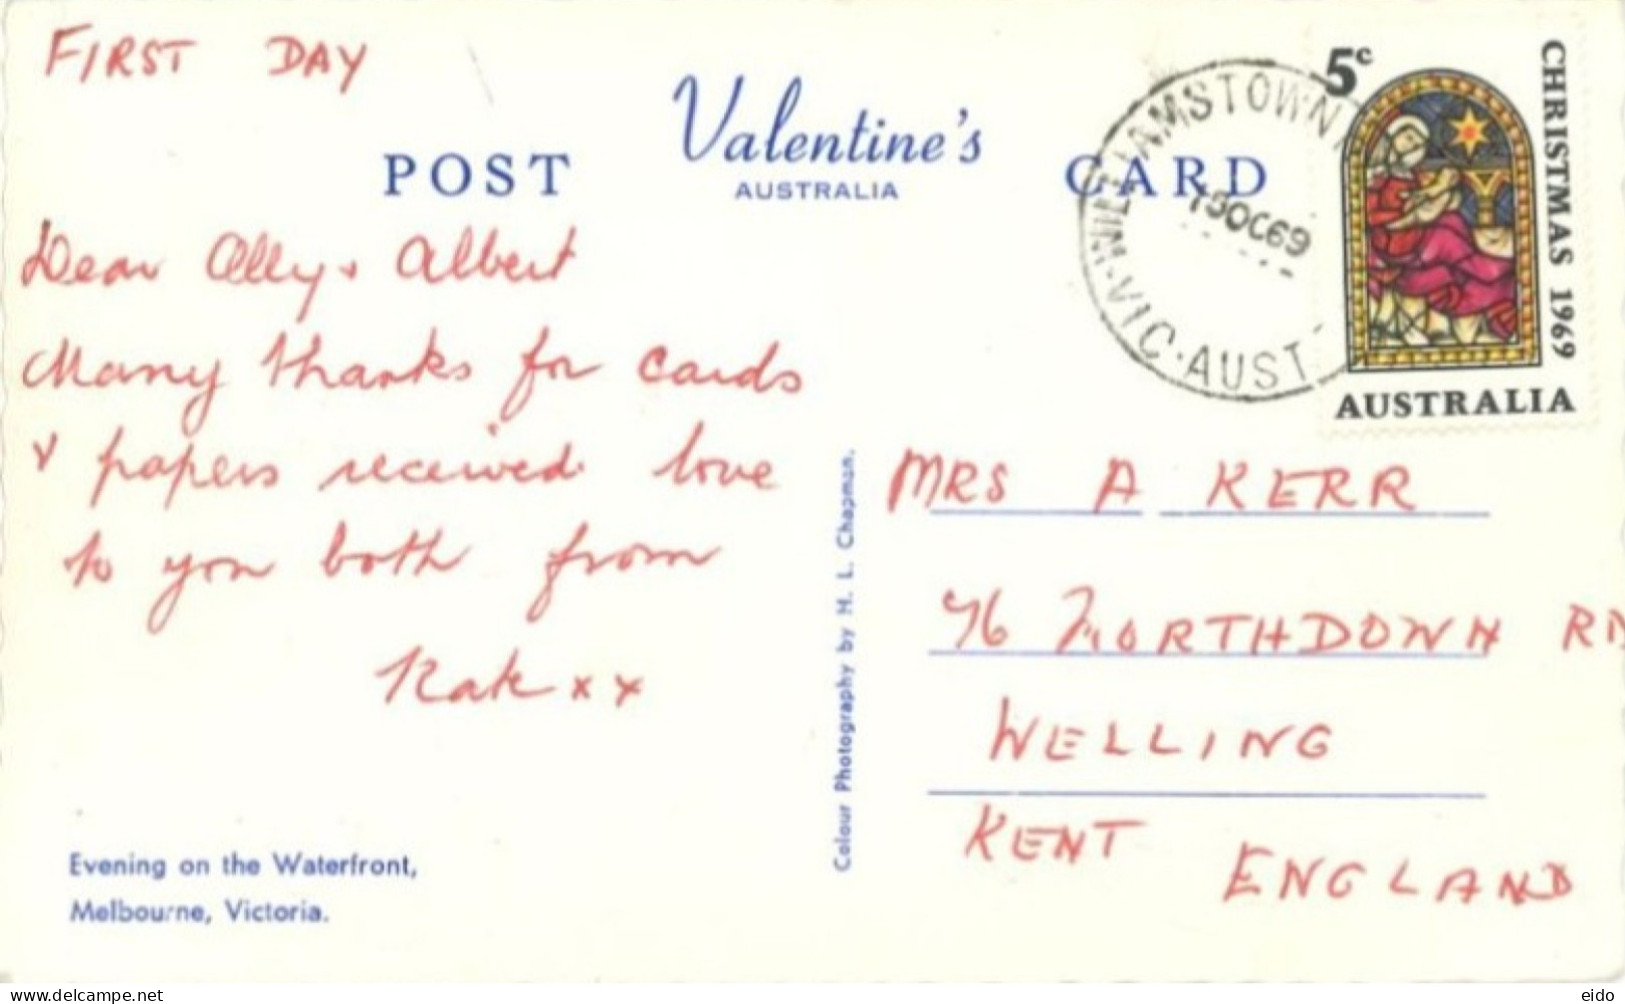 FIRST DAY
POST Valentine's CARD
AUSTRALIA
5c
CHRISTMAS 1969
AUSTRALIA
WILLIAMSTOWN
15OC69
VIC·AUST.
Dear Ally & Albert
Many thanks for cards
& papers received love
to you both from
Kate xx
Evening on the Waterfront,
Melbourne, Victoria.
Colour Photography by H. L. Chapman.
MRS A KERR
76 NORTHDOWN RD
WELLING
KENT
ENGLAND
delcampe.net
eido